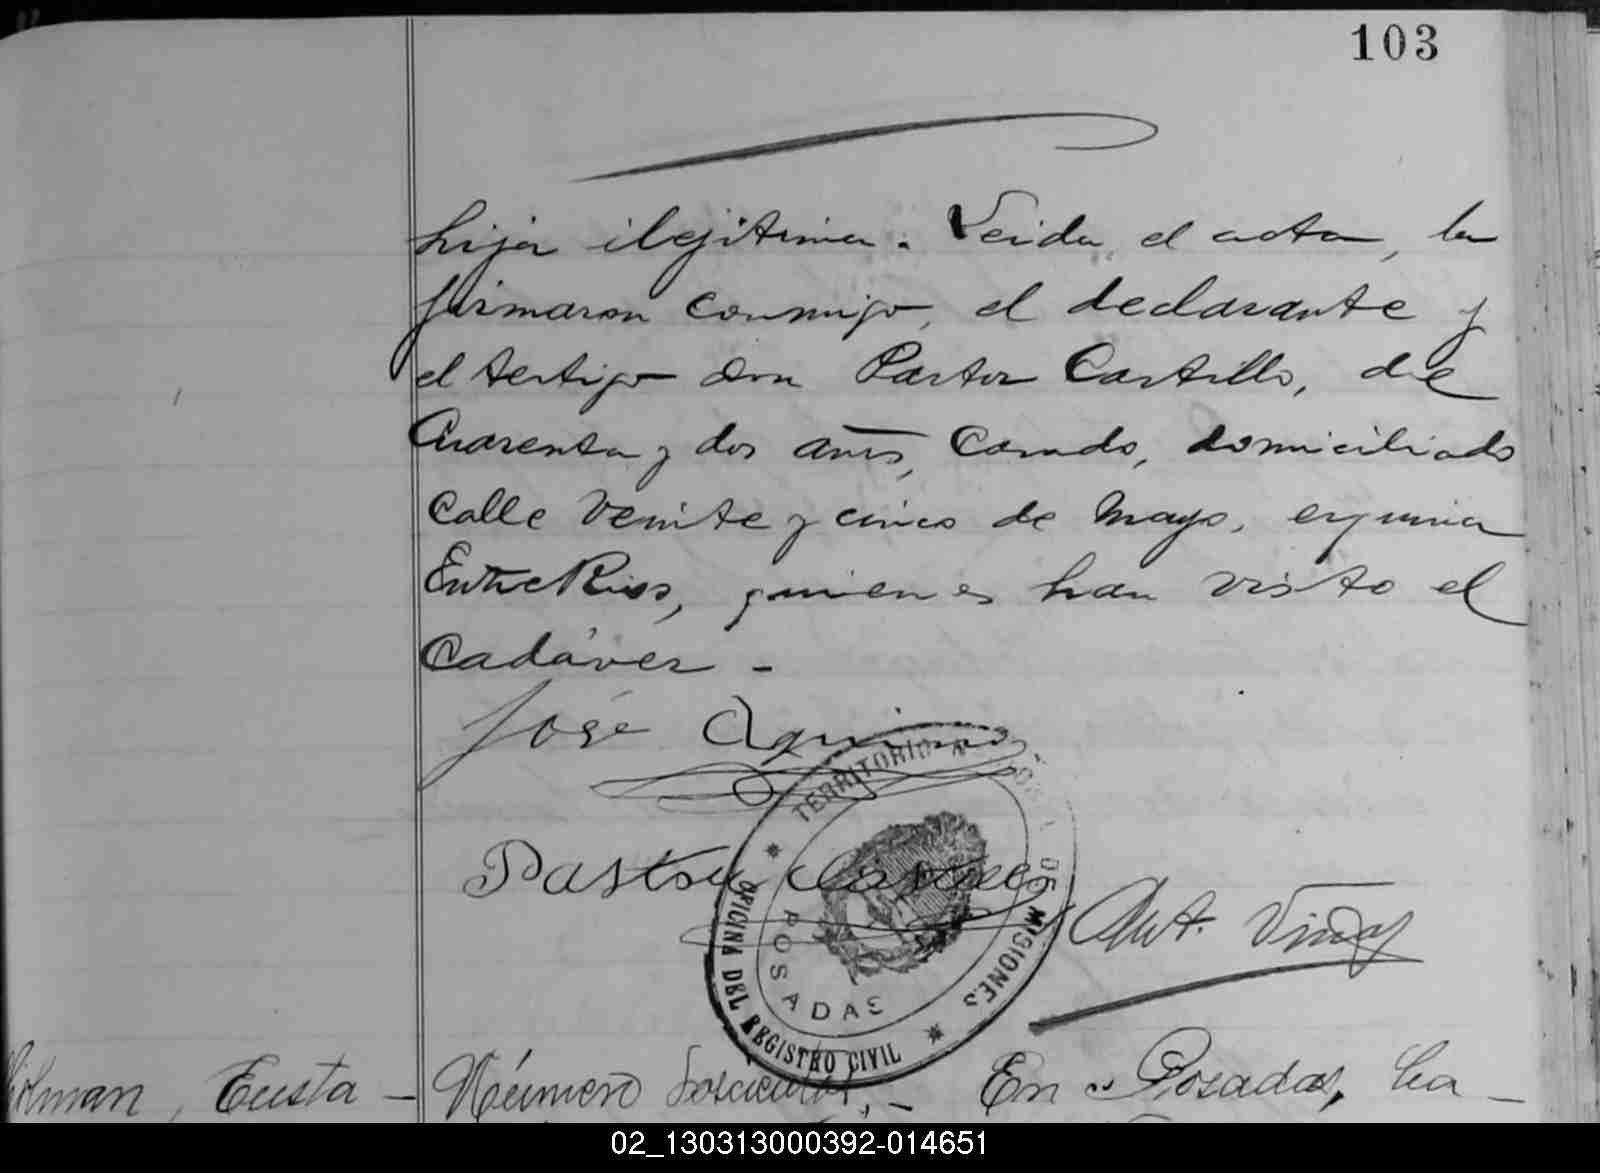 103
hija ilejitima. Leida el acta, la
firmaron conmigo, el declarante y
el testigo don Pastor Castillo, de
Cuarenta y dos años, Casado, domiciliado
Calle Veinte y cinco de Mayo, esquina
Entre Rios, quienes han visto el
Cadáver -
José Aquino
Pastor Castillo
Ant. Vi
TERRITORIO NACIONAL DE MISIONES
OFICINA DEL REGISTRO CIVIL
POSADAS
Eusta -
Número Doscientos, - En Posadas, Ca -
02_130313000392-014651